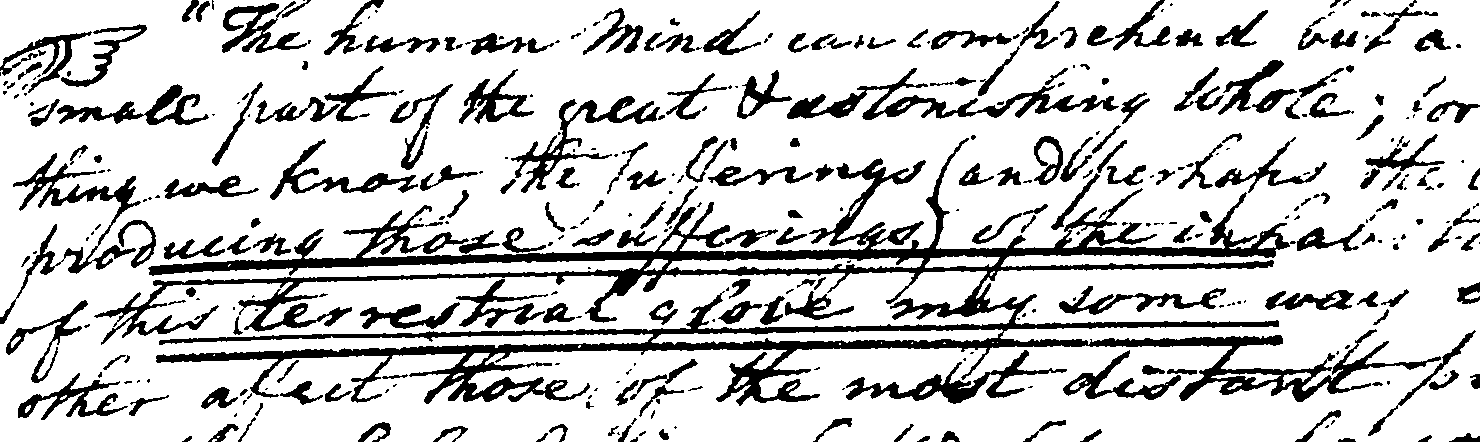 "The human Mind can comprehend but a
small part of the great & astonishing Whole; for
thing we know, the sufferings (and perhaps the
producing those sufferings,) of the inhabita
of this terrestrial globe may some way
other affect those of the most distant